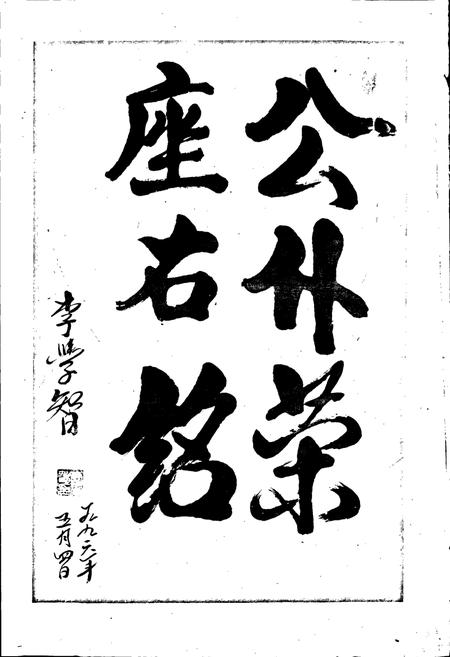 公仆荣
座右铭
李學智
一九九六年
五月四日